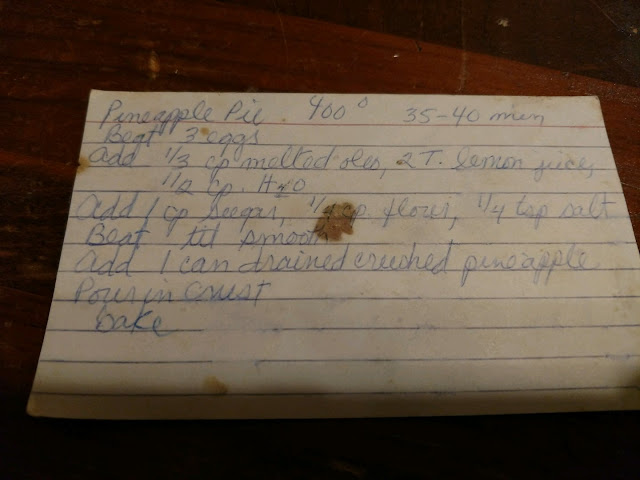 Pineapple Pie 400° 35-40 min
Beat 3 eggs
Add 1/3 cp melted oleo, 2 T. lemon juice,
1/2 cp. H2O
Add 1 cp sugar, 1/4 cp. flour, 1/4 tsp salt
Beat til smooth
Add 1 can drained crushed pineapple
Pour in Crust
bake